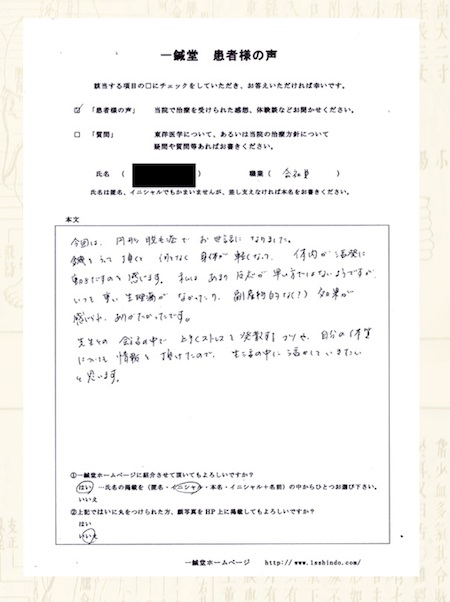 一鍼堂 患者様の声
該当する項目の□にチェックをしていただき、お答えいただければ幸いです。
☑ 「患者様の声」 当院で治療を受けられた感想、体験談などお聞かせください。
□ 「質問」 東洋医学について、あるいは当院の治療方針について
疑問や質問等あればお書きください。
氏名 ( ) 職業 ( 会社員 )
氏名は匿名、イニシャルでもかまいませんが、差し支えなければ本名をお書きください。
本文
今回は、円形脱毛症でお世話になりました。
鍼をうって頂くと 身体が軽くなって、体内が活発に
動きだすのを感じます。私はあまり反応が早い方ではないようですが、
いつも重い生理痛がなかったり、副産物的な(?) 効果が
感じられ、ありがたかったです。
先生との会話の中で 上手くストレスを発散するコツや、自分の体質
についても情報を頂けたので、生活の中に活かしていきたい
と思います。
①一鍼堂ホームページに紹介させて頂いてもよろしいですか?
はい —氏名の掲載を(匿名・イニシャル・本名・イニシャル+名前)の中からひとつお選び下さい。
いいえ
②上記ではいに丸をつけられた方、顔写真をHP上に掲載してもよろしいですか?
はい
いいえ
一鍼堂ホームページ http://www.isshindo.com/